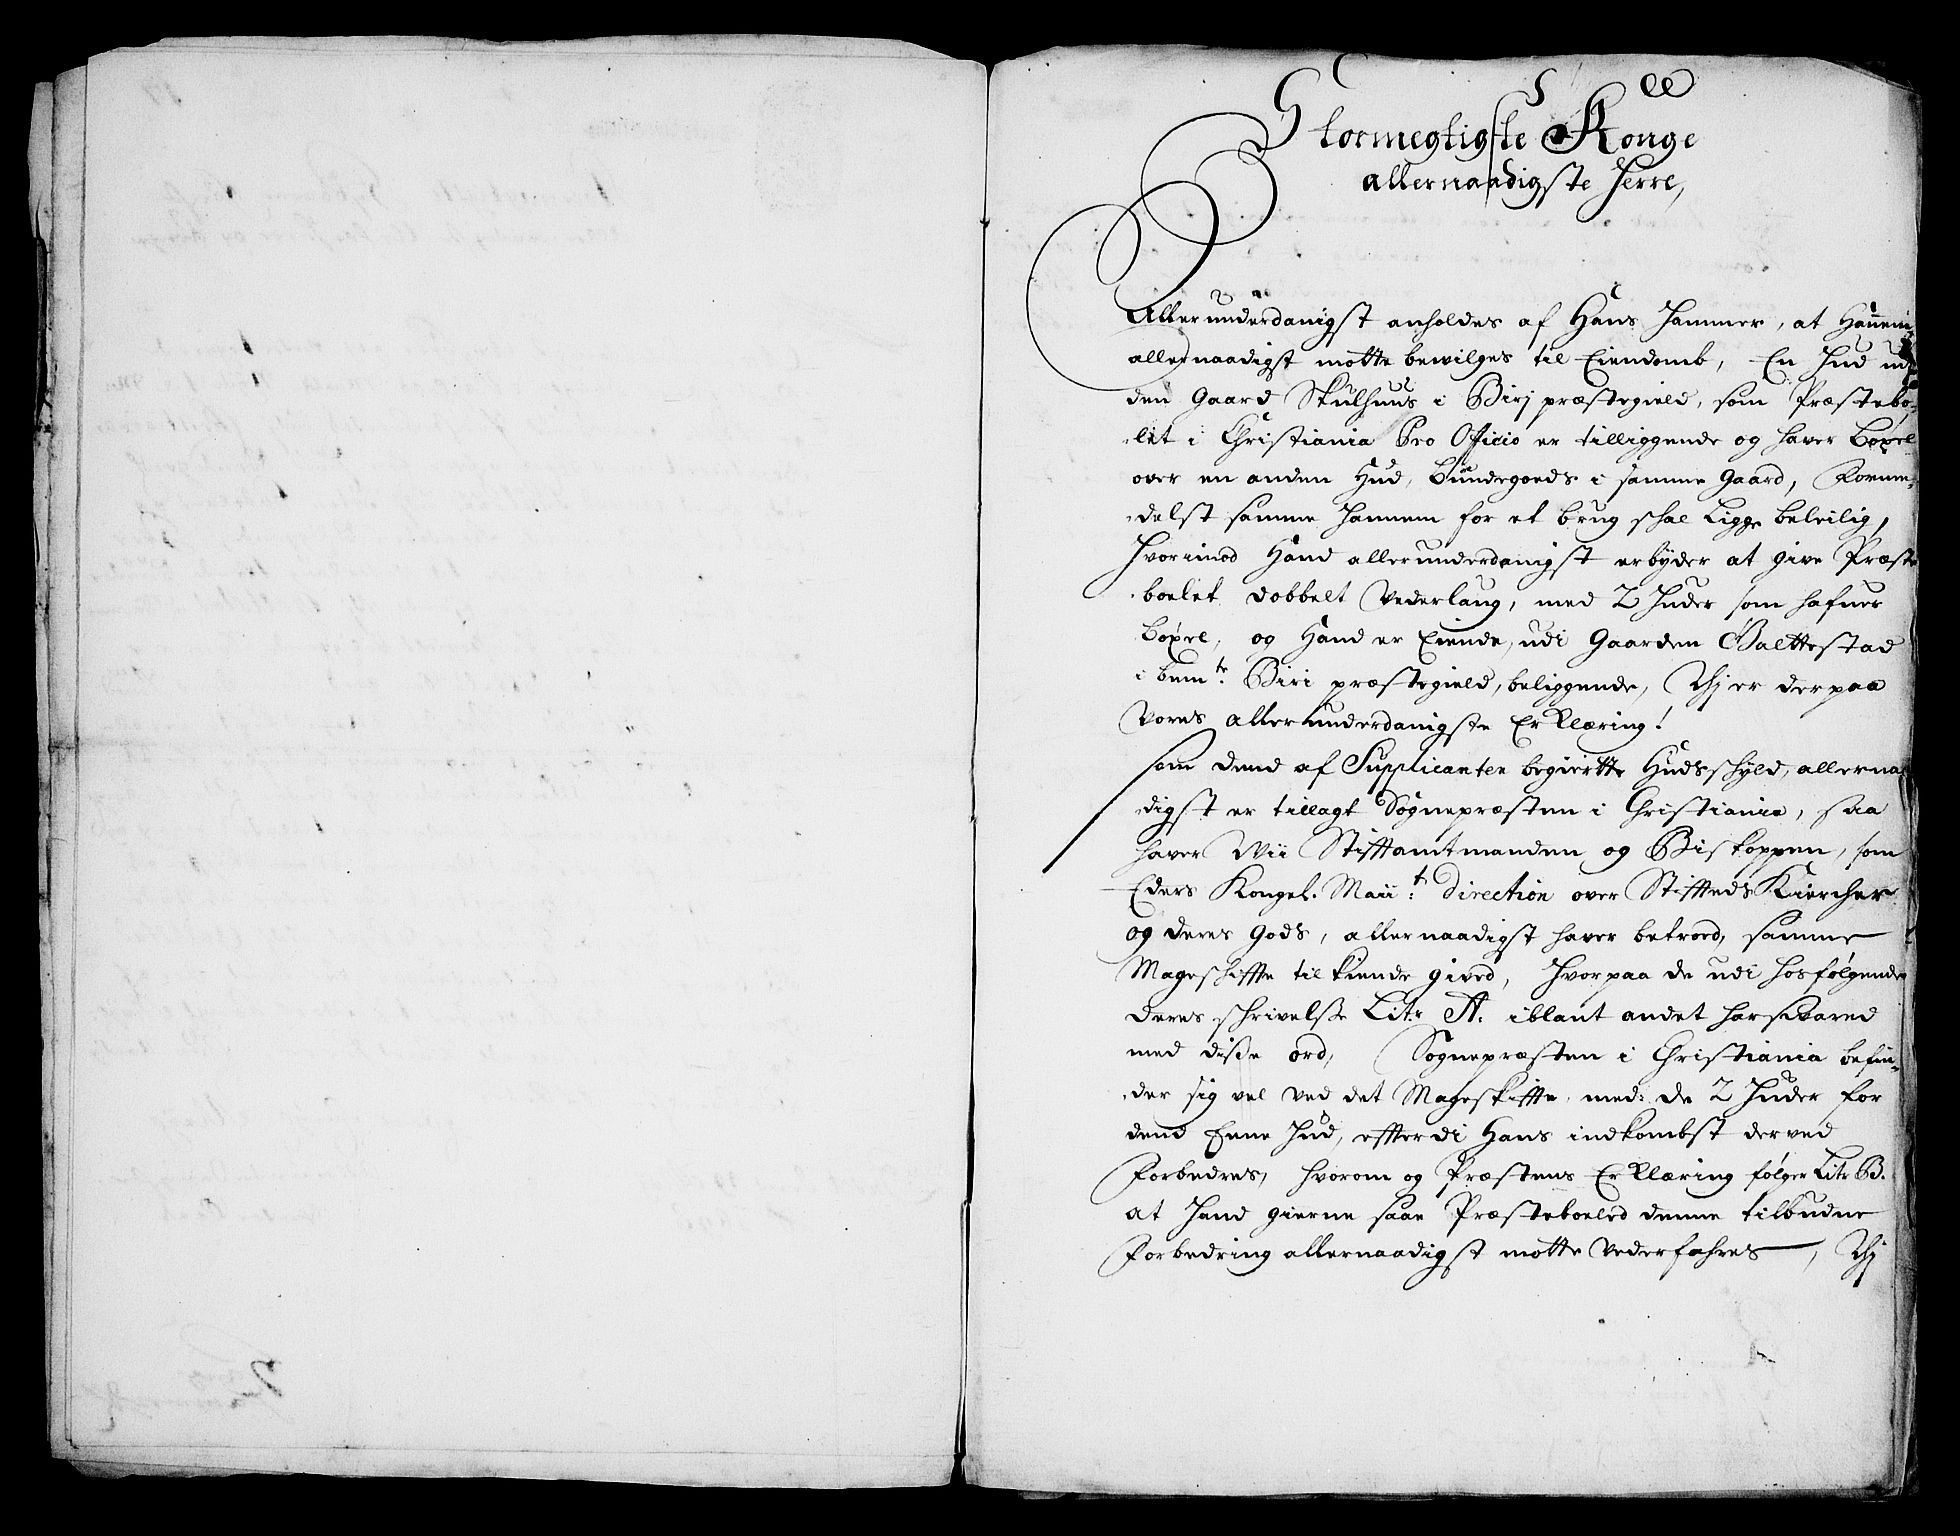 Stormegtigste Konge
allernaadigste Herre,
Allerunderdanigst anholdes af Hans Hammer, at Hannem
allernaadigst motte bewilges til Eiendomb, En Hud udj
den Gaard Skulhuus i Birj præstegield, som Præstebo-
let i Christiania Pro Officio er tilliggende og haver Boxel
over en anden Hud, Bundegoeds i samme Gaard, Formi-
delst samme Hannem for et brug schal Ligge beleilig,
Hvorimod Hand allerunderdanigst erbyder at give Præste
boelet dobbelt Vederlaug, med 2 Huder som hafuer
Boxel, og Hand er Eiende, udi Gaarden Balttestad
i bem.te Biri præstegield, beliggende, Thj er derpaa
Vores allerunderdanigste ErKlæring!
Som dend af Supplicanten begiertte Hudsschyld, allernaa
digst er tillagt Sognepræsten i Christiania, saa
haver Wii Stifftamtmanden og Biskoppen, som
Eders Kongel. Maii:t Direction over StifftedsKiercher
og deres Gods, allernaadigst haver betroed, samme
Mageschiffte tilkiende gived, Hvorpaa de udi hosfølgende
deres schrivelsse Litr A. iblant andet har svared
med disse ord, Sognepræsten i Christiania befin-
der sig vel ved det Mageskiffte med: de 2 Huder for
dend Eene Hud, effterdi Hans indkombst derved
Forbedres, hvorom og Præstens ErKlæring følger Litr B.
at Hand gierne saae Præsteboeled denne tilbudne
Forbedring allernaadigst motte Vederfahres, Thj